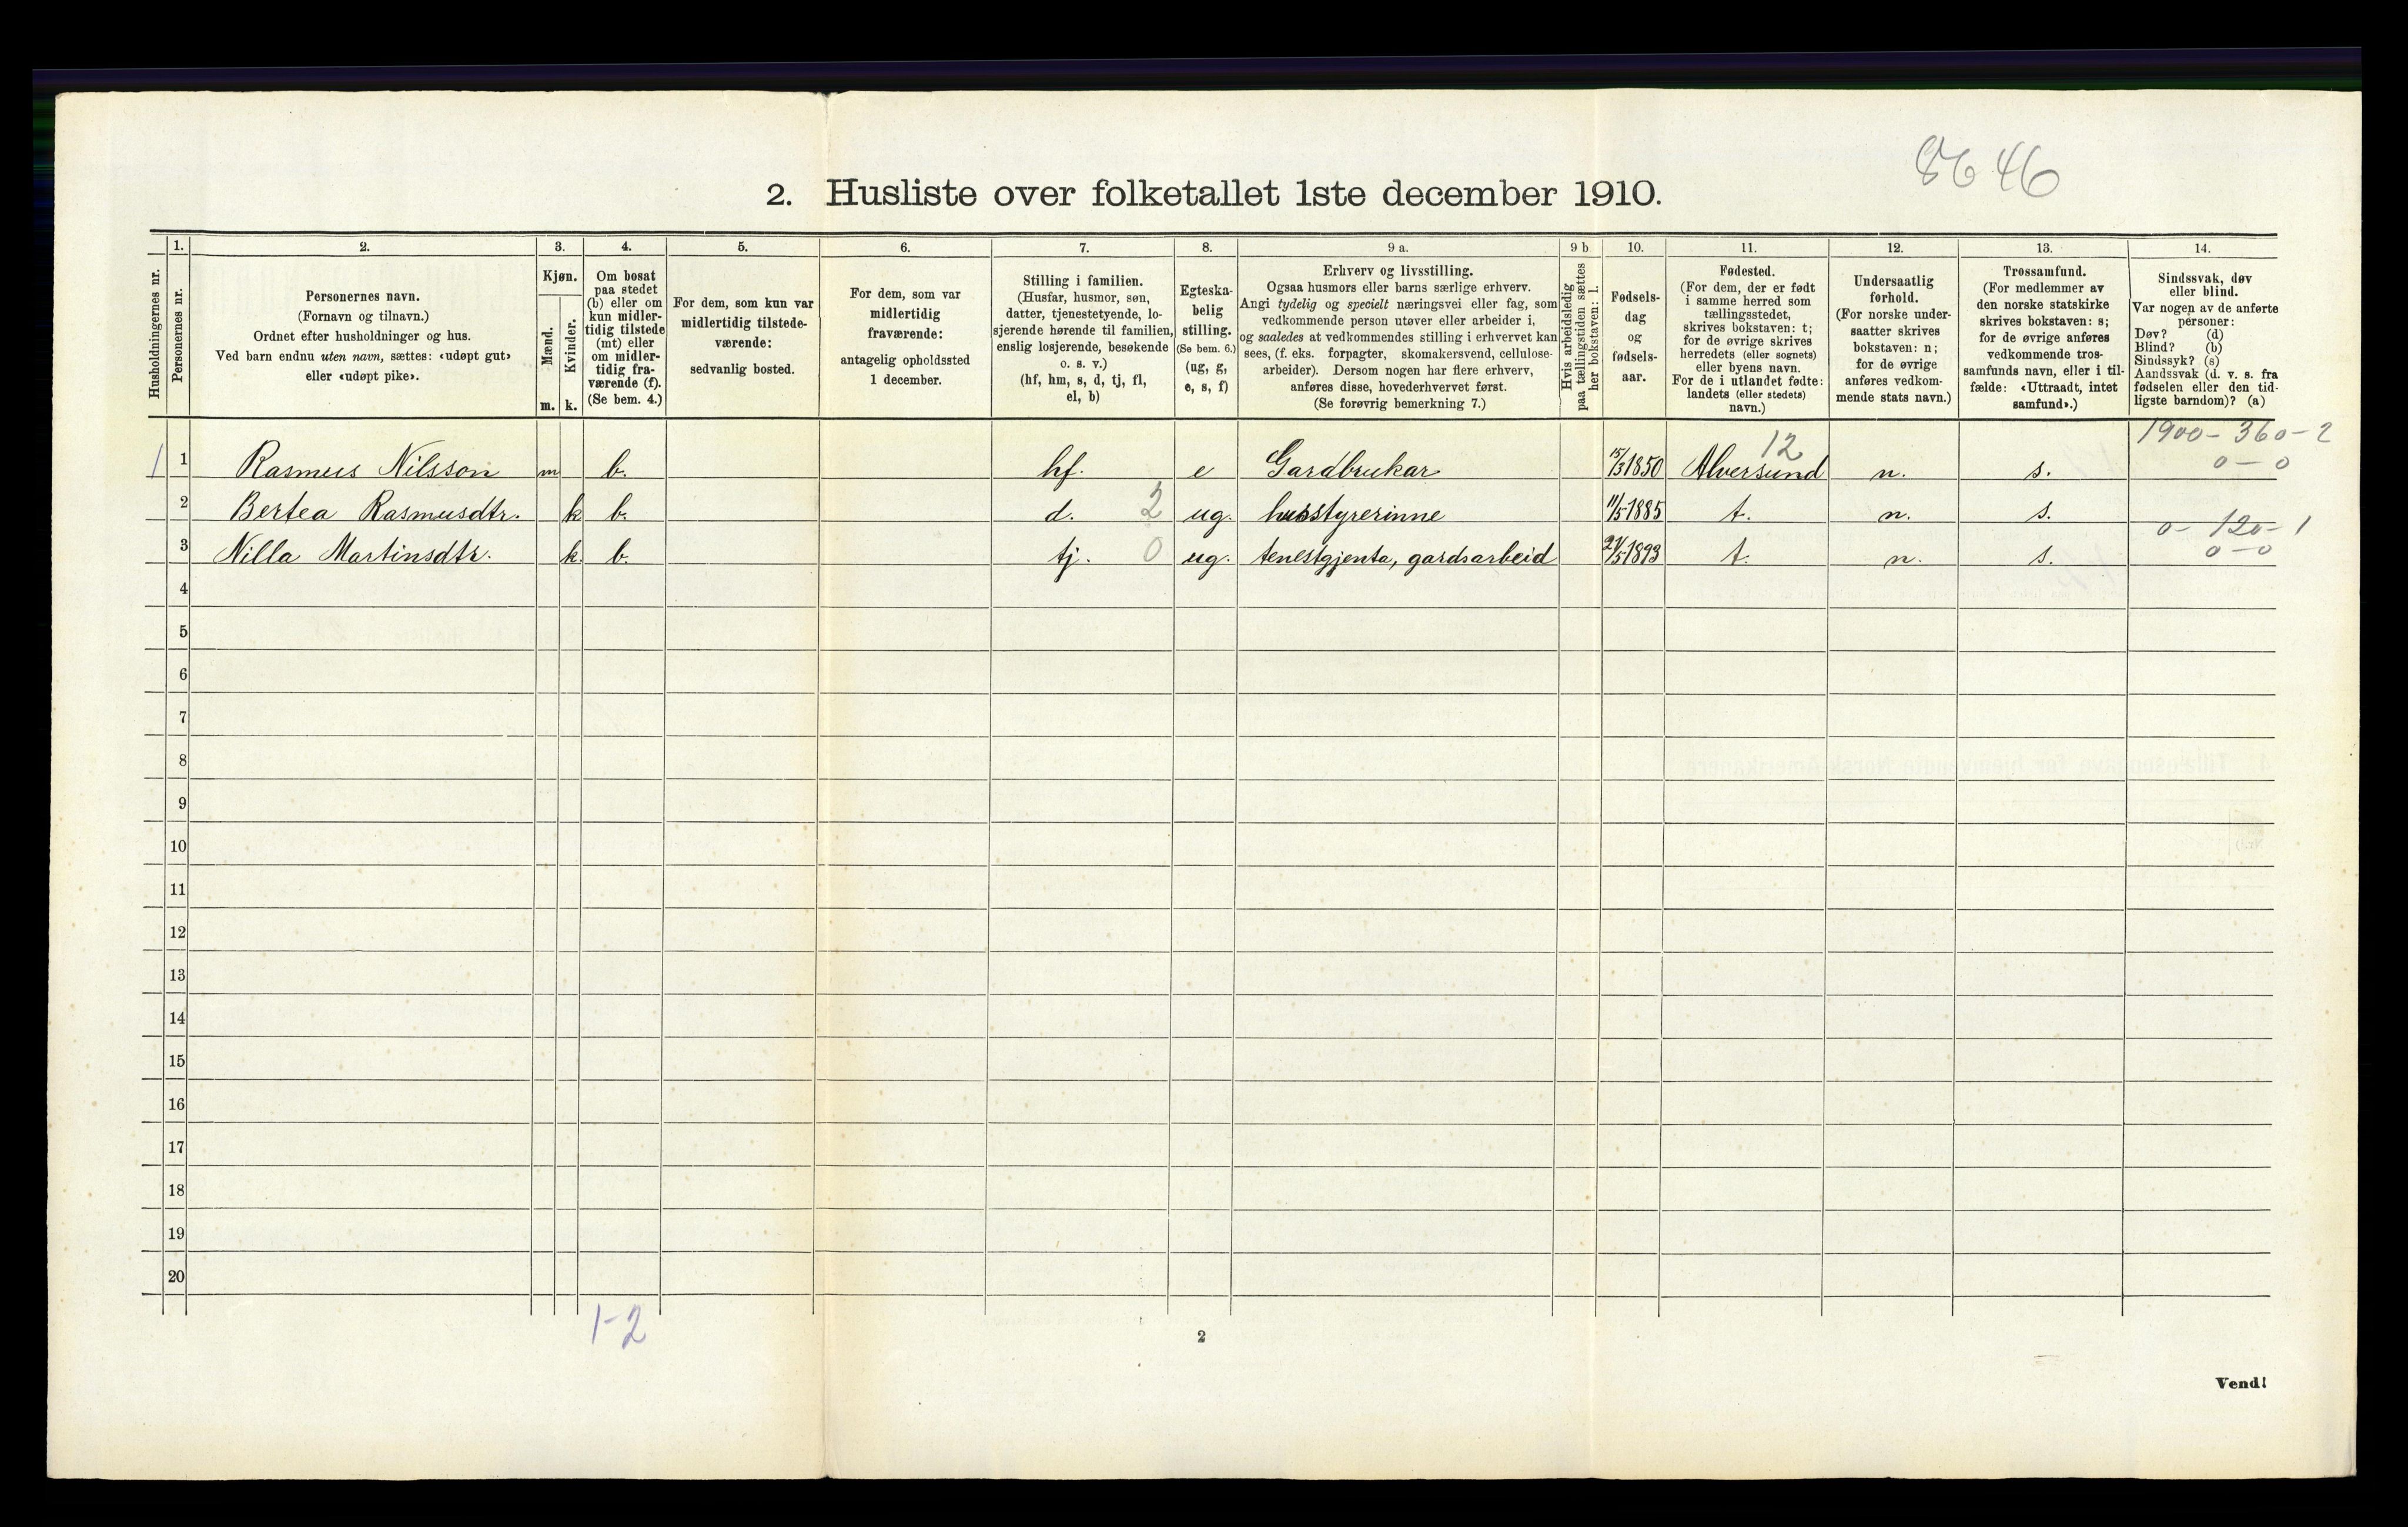 8646
2. Husliste over folketallet 1ste december 1910.
Husholdningernes nr.
1.
Personernes nr.
2.
Personernes navn.
(Fornavn og tilnavn.)
Ordnet efter husholdninger og hus.
Ved barn endnu uten navn, sættes: «udøpt gut»
eller «udøpt pike».
3.
Kjøn.
Mænd.
Kvinder.
m. k.
4.
Om bosat
paa stedet
(b) eller om
kun midler-
tidig tilstede
(mt) eller
om midler-
tidig fra-
værende (f).
(Se bem. 4.)
5.
For dem, som kun var
midlertidig tilstede-
værende:
sedvanlig bosted.
6.
For dem, som var
midlertidig
fraværende:
antagelig opholdssted
1 december.
7.
Stilling i familien.
(Husfar, husmor, søn,
datter, tjenestetyende, lo-
sjerende hørende til familien,
enslig losjerende, besøkende
o. s. v.)
(hf, hm, s, d, tj, fl,
el, b)
8.
Egteska-
belig
stilling.
(Se bem. 6.)
(ug, g,
e, s, f)
9 a.
Erhverv og livsstilling.
Ogsaa husmors eller barns særlige erhverv.
Angi tydelig og specielt næringsvei eller fag, som
vedkommende person utøver eller arbeider i,
og saaledes at vedkommendes stilling i erhvervet kan
sees, (f. eks. forpagter, skomakersvend, cellulose-
arbeider). Dersom nogen har flere erhverv,
anføres disse, hovederhvervet først.
(Se forøvrig bemerkning 7.)
9 b
Hvis arbeidsledig
paa tællingstiden sættes
her bokstaven: l.
10.
Fødsels-
dag
og
fødsels-
aar.
11.
Fødested.
(For dem, der er født
i samme herred som
tællingsstedet,
skrives bokstaven: t;
for de øvrige skrives
herredets (eller sognets)
eller byens navn.
For de i utlandet fødte:
landets (eller stedets)
navn.)
12.
Undersaatlig
forhold.
(For norske under-
saatter skrives
bokstaven: n;
for de øvrige
anføres vedkom-
mende stats navn.)
13.
Trossamfund.
(For medlemmer av
den norske statskirke
skrives bokstaven: s;
for de øvrige anføres
vedkommende tros-
samfunds navn, eller i til-
fælde: «Uttraadt, intet
samfund».)
14.
Sindssvak, døv
eller blind.
Var nogen av de anførte
personer:
Døv? (d)
Blind? (b)
Sindssyk? (s)
Aandssvak (d. v. s. fra
fødselen eller den tid-
ligste barndom)? (a)
12 1900 - 360 - 2
1 1 Rasmus Nilsson m b. hf. e Gardbrukar 15/3 1850 Alversund n. s. 0 - 0
2 Bertea Rasmusdtr. k b. d. 2 ug. husstyrerinne 11/5 1885 t. n. s.
0 - 120 - 1
3 Nilla Martinsdtr. k. b. tj. 0 ug. tenestgjenta, gardsarbeid 21/5 1893 t. n. s. 0 - 0
4
5
6
7
8
9
10
11
12
13
14
15
16
17
18
19
20
1-2
2
Vend!